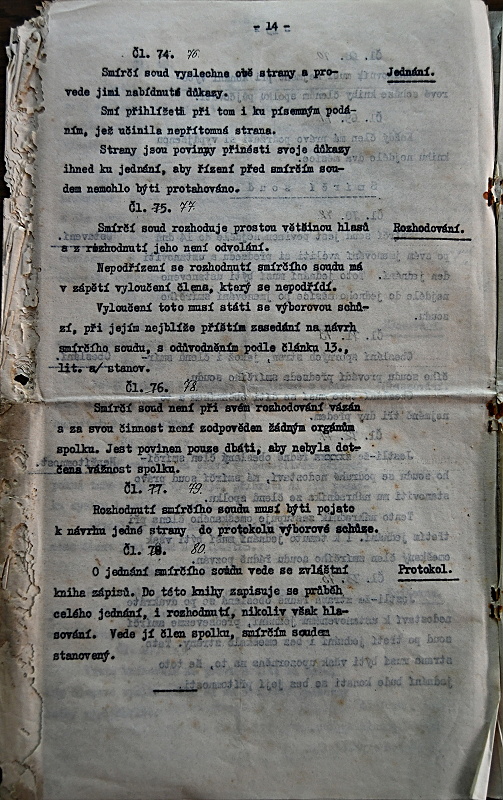 - 14 -
Čl. 74. 76
Smírčí soud vyslechne obě strany a pro- Jednání.
vede jimi nabídnuté důkazy.
Smí přihlížeti při tom i ku písemným podá-
ním, jež učinila nepřítomná strana.
Strany jsou povinny přinésti svoje důkazy
ihned ku jednání, aby řízení před smírčím sou-
dem nemohlo býti protahováno.
Čl. 75. 77.
Smírčí soud rozhoduje prostou většinou hlasů Rozhodování.
a z rozhodnutí jeho není odvolání.
Nepodřízení se rozhodnutí smírčího soudu má
v zápětí vyloučení člena, který se nepodřídí.
Vyloučení toto musí státi se výborovou schů-
zí, při jejím nejblíže příštím zasedání na návrh
smírčího soudu, s odůvodněním podle článku 13.,
lit. a/ stanov.
Čl. 76. 78.
Smírčí soud není při svém rozhodování vázán
a za svou činnost není zodpověden žádným orgánům
spolku. Jest povinen pouze dbáti, aby nebyla dot-
čena vážnost spolku.
Čl. 77. 79.
Rozhodnutí smírčího soudu musí býti pojato
k návrhu jedné strany do protokolu výborové schůze.
Čl. 78. 80.
O jednání smírčího soudu vede se zvláštní Protokol.
kniha zápisů. Do této knihy zapisuje se průběh
celého jednání, i rozhodnutí, nikoliv však hla-
sování. Vede jí člen spolku, smírčím soudem
stanovený.